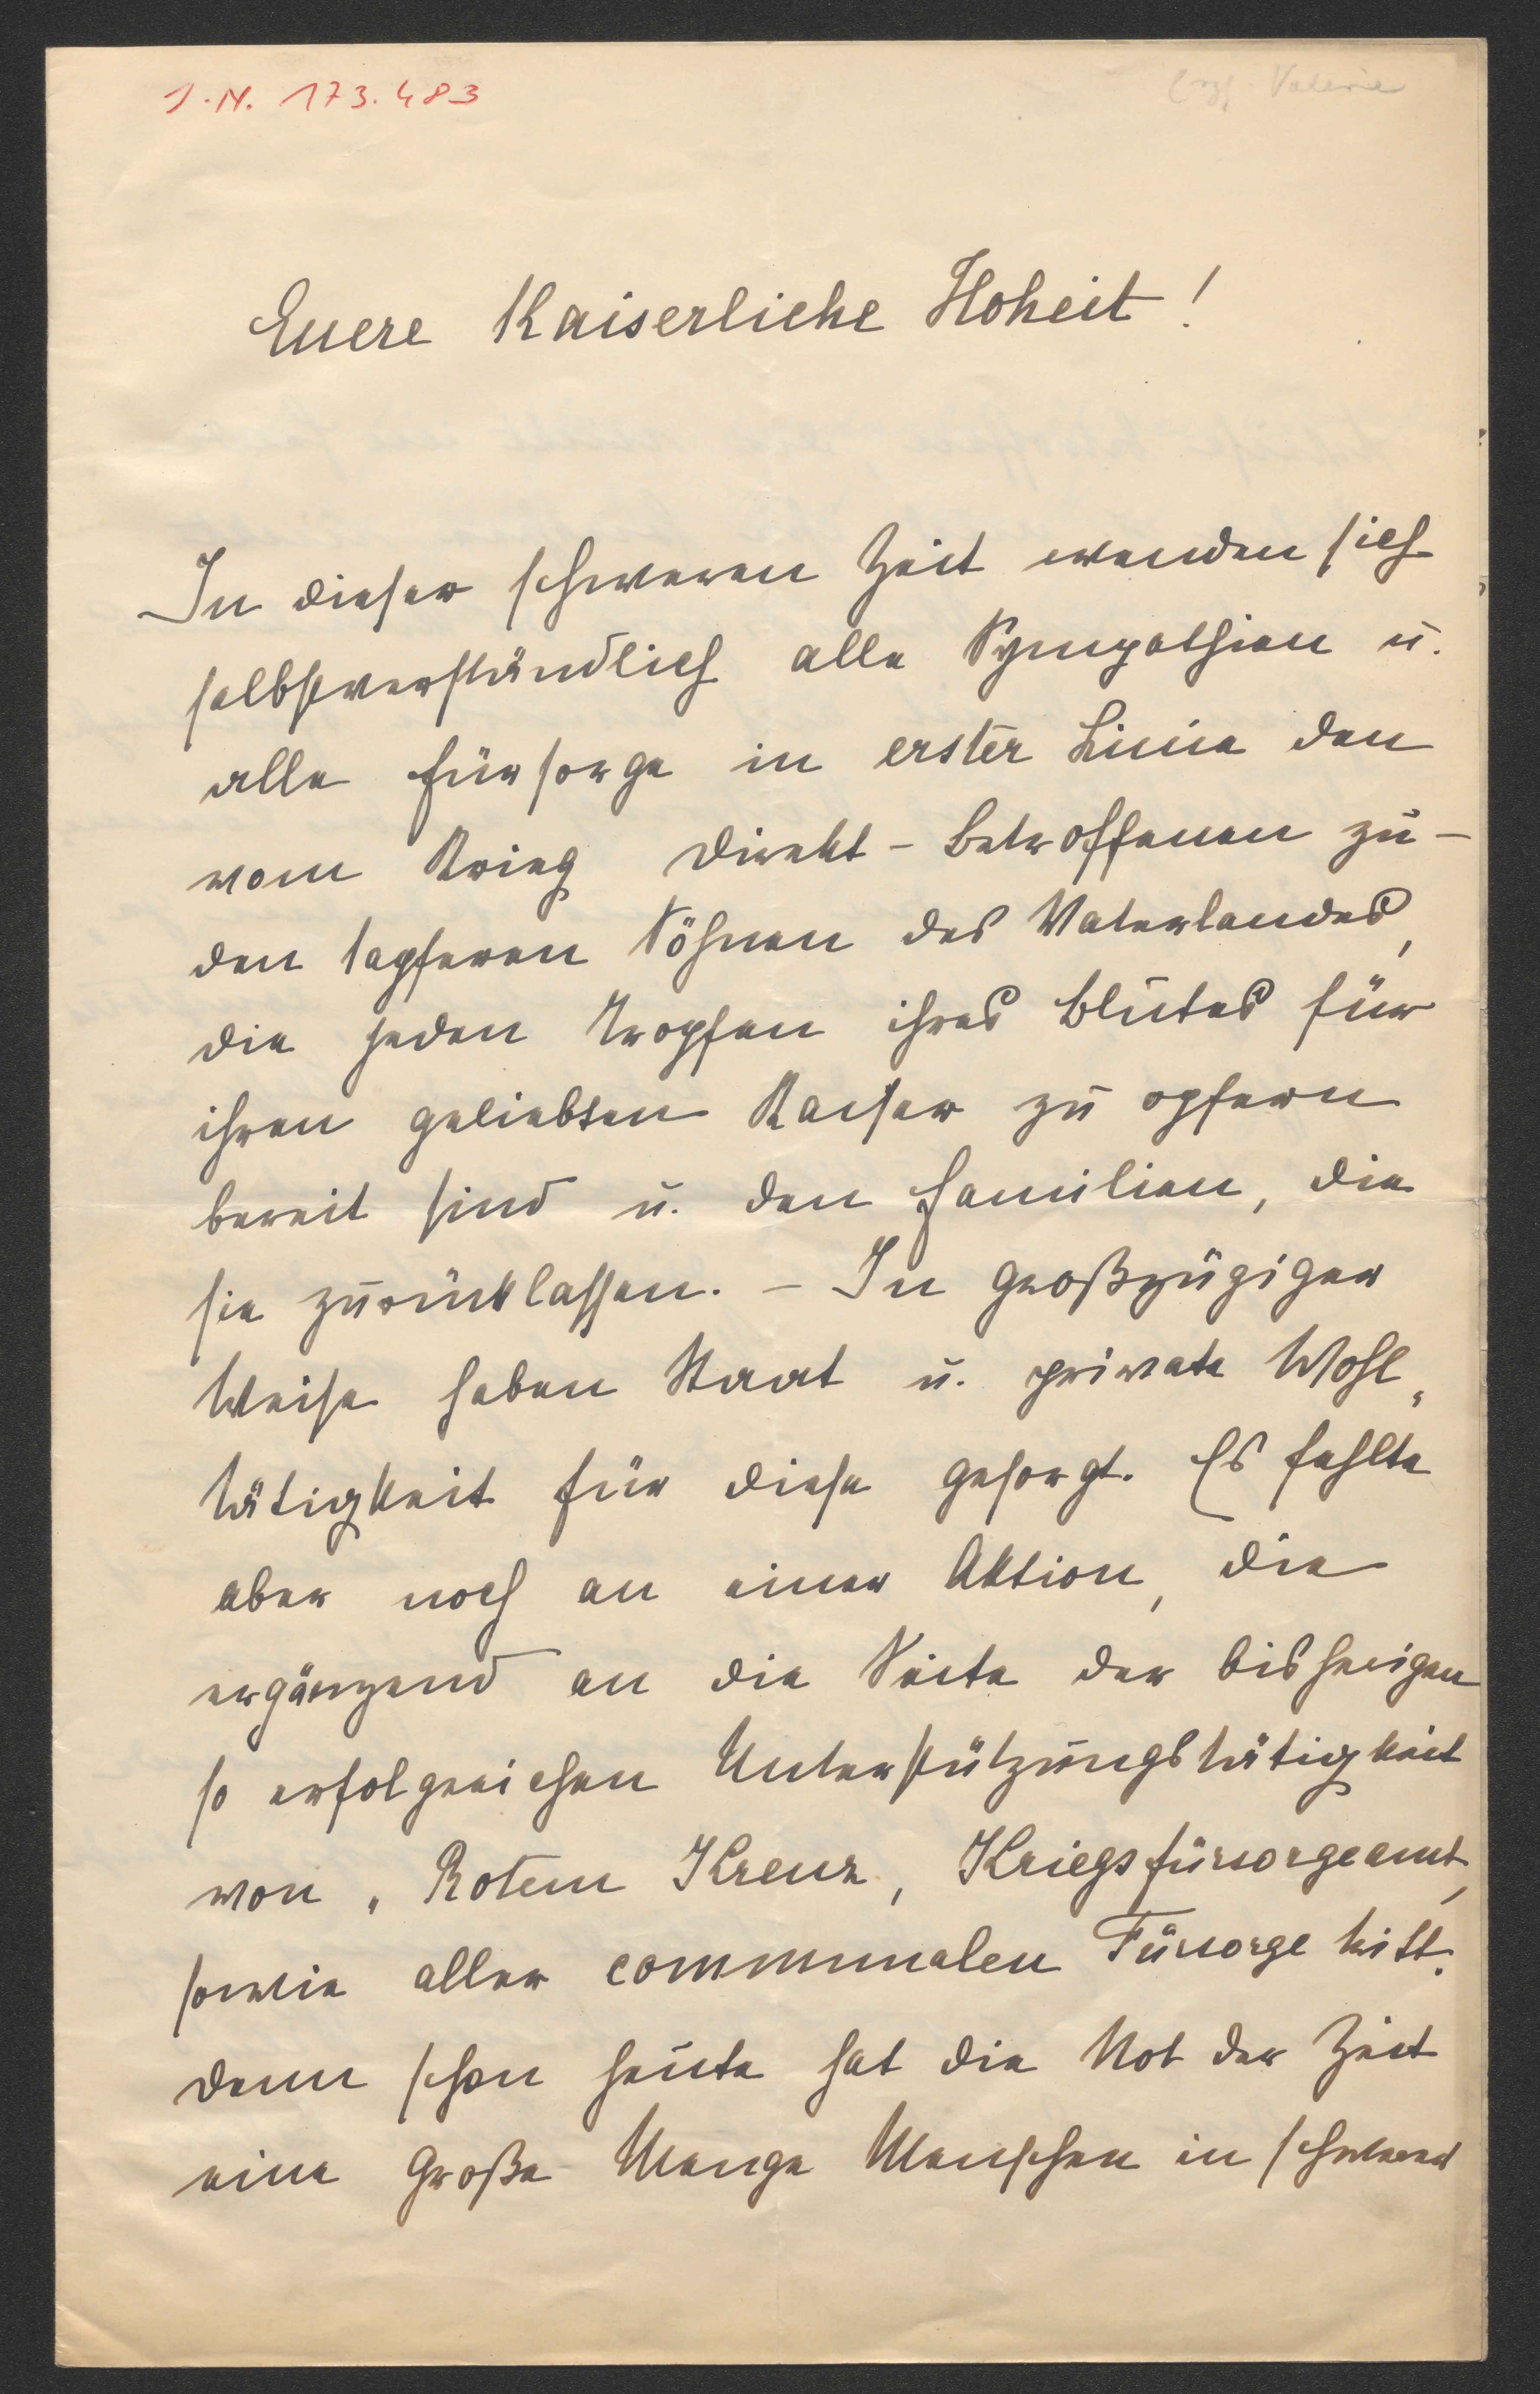 I.N. 173.483
Erzh. Valerie
Euere Kaiserliche Hoheit!
In dieser schweren Zeit wenden sich
selbstverständlich alle Sympathien u.
alle Fürsorge in erster Linie den
vom Krieg direkt-Betroffenen zu -
den tapferen Söhnen des Vaterlandes,
die jeden Tropfen ihres Blutes für
ihren geliebten Kaiser zu opfern
bereit sind u. den Familien, die
sie zurücklassen. - In großzügiger
Weise haben Staat u. private Wohl„
tätigkeit für diese gesorgt. Es fehlte
aber noch an einer Aktion, die
ergänzend an die Seite der bisherigen
so erfolgreichen Unterstützungstätigkeit
von „Rotem Kreuz, Kriegsfürsorgeamt,
sowie aller communalen Fürsorge tritt.
denn schon heute hat die Not der Zeit
eine große Menge Menschen in schwerer